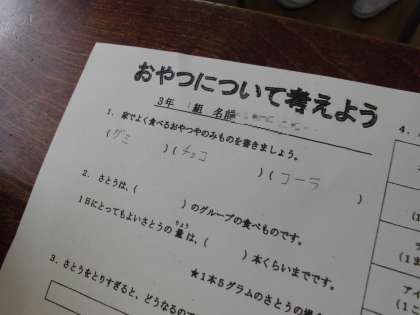 おやつについて考えよう
3年 1組 名前
1. 家でよく食べるおやつやのみものを書きましょう。
(グミ )(チョコ )(コーラ )
2. さとうは、( )のグループの食べものです。
1日にとってもよいさとうの量は、( )本くらいまでです。
りょう
★1本5グラムのさとうの
3. さとうをとりすぎると、どうなるので
4.
(1
(1ま
アイ
(1こ